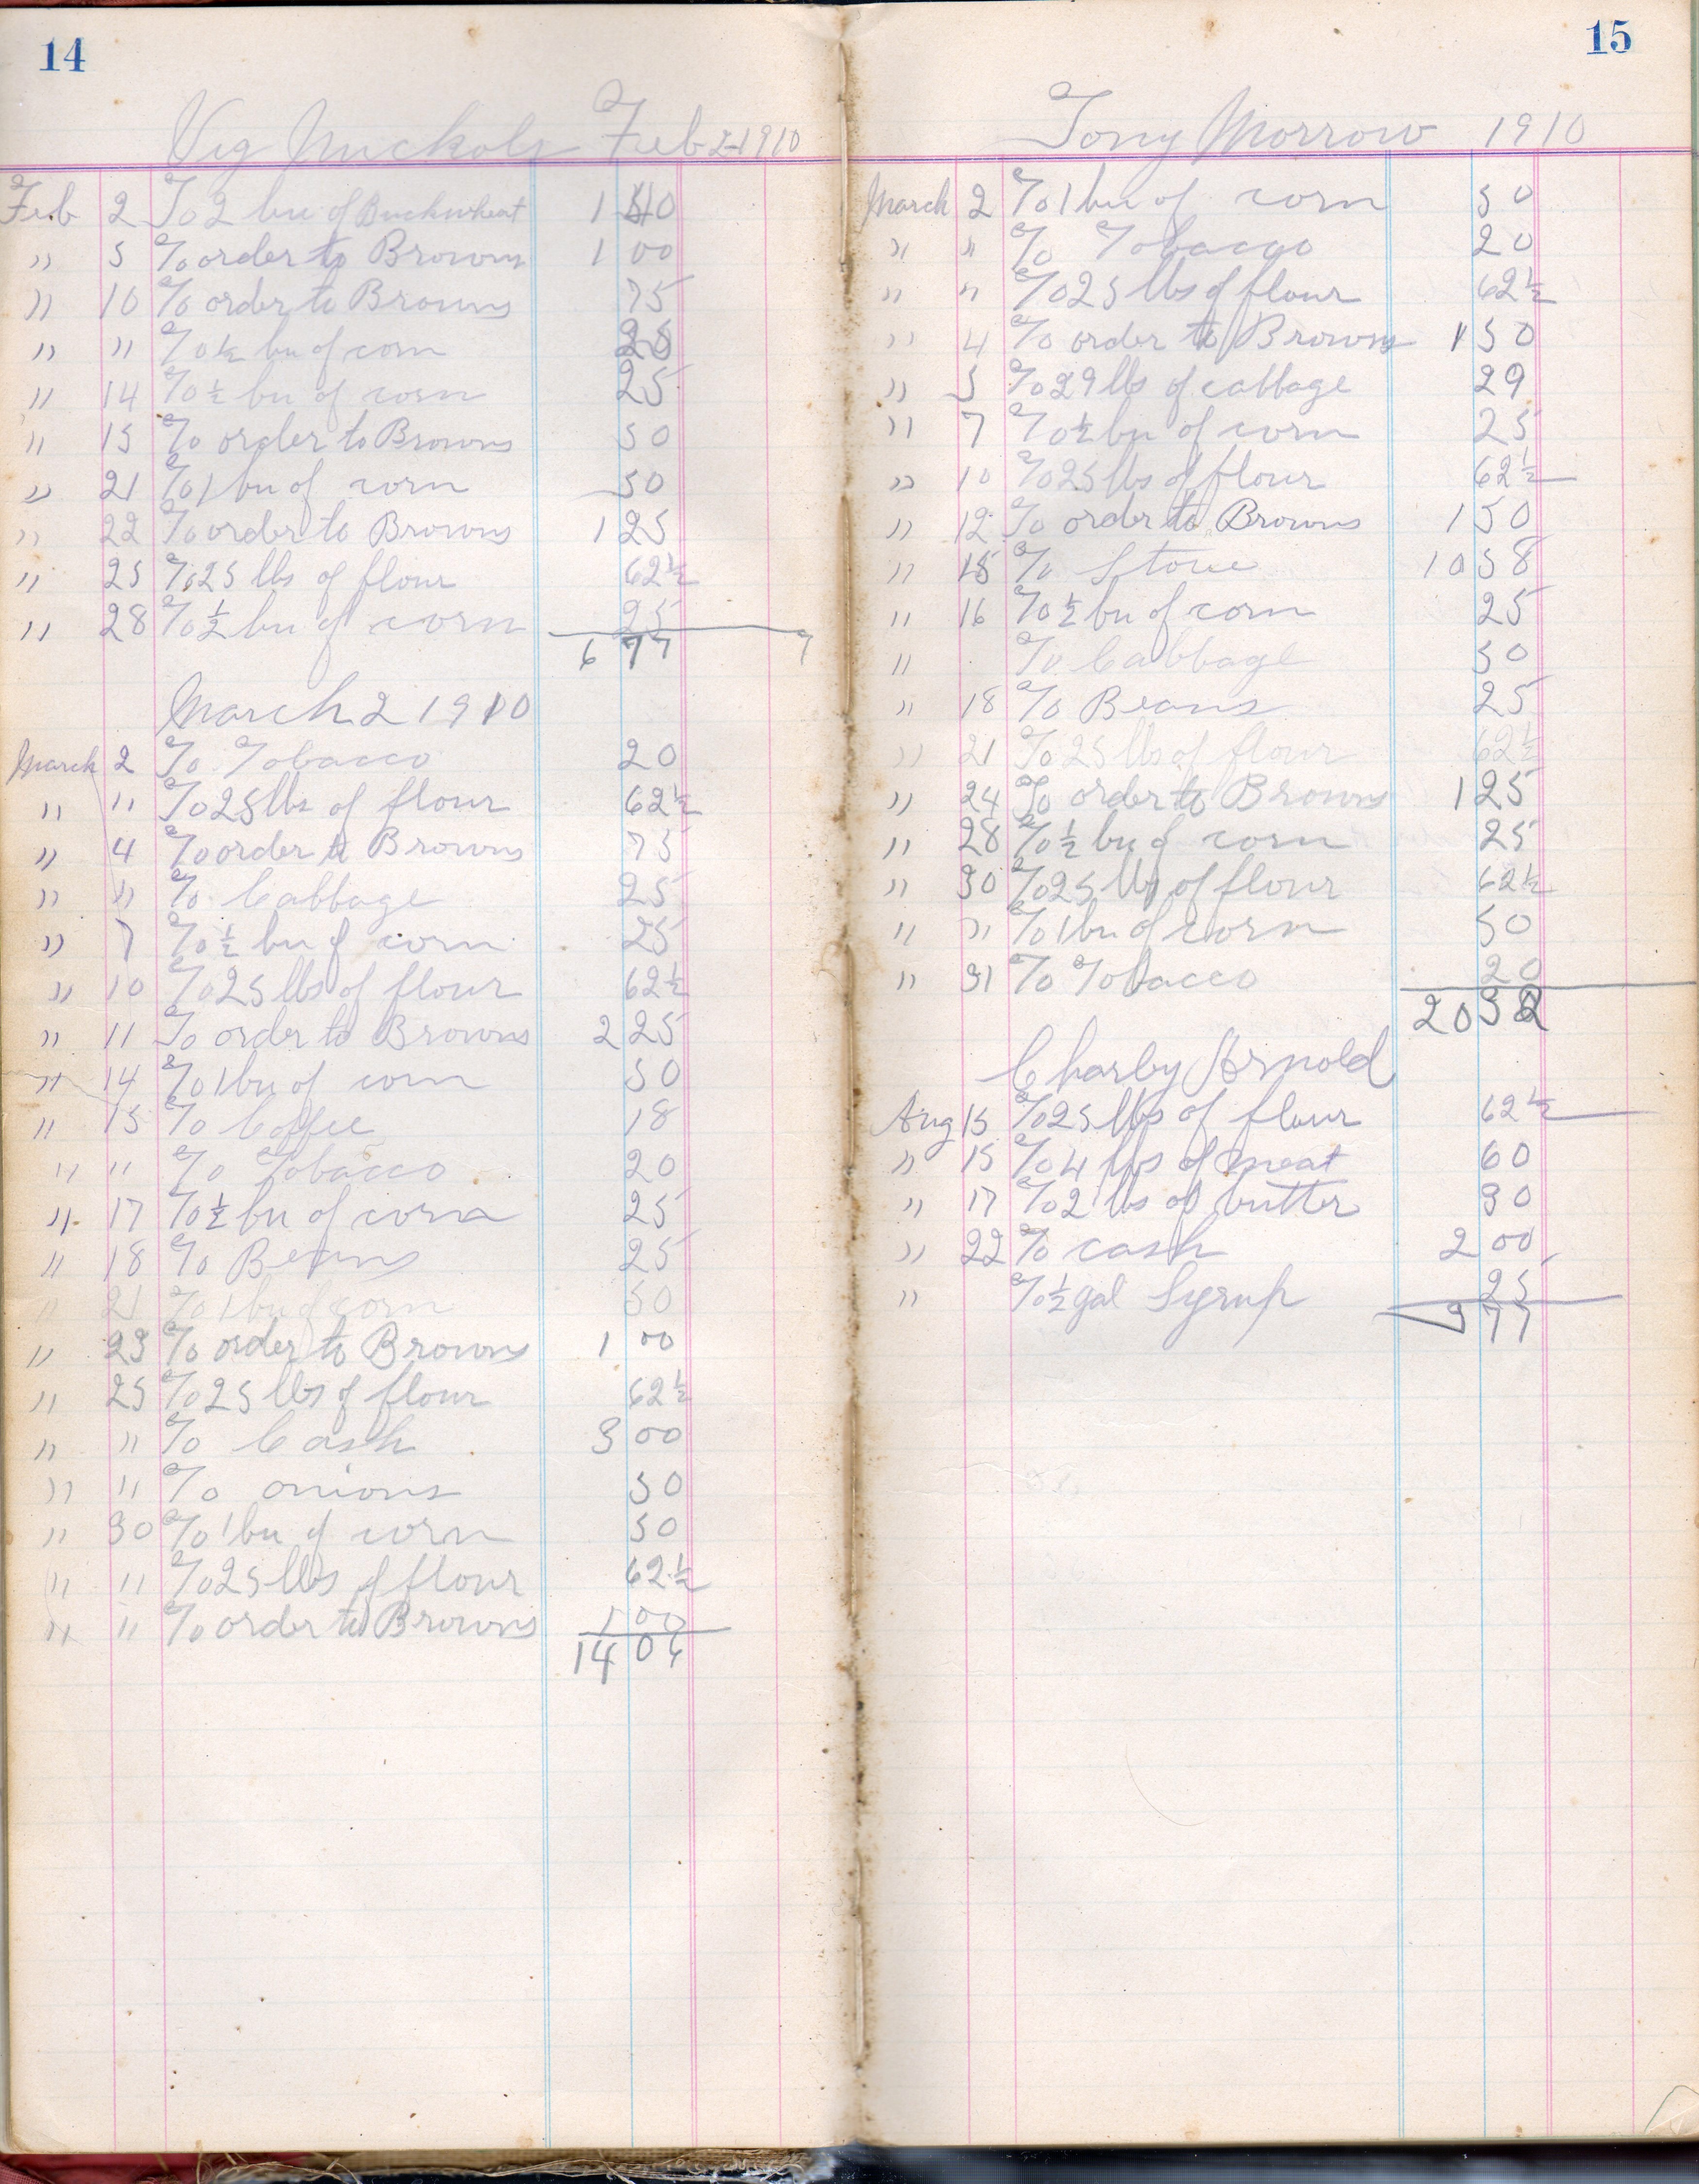 14
Vig Nuckols Feb 2-1910
Feb 2 To 2 bu of Buckwheat 1 40
" 5 To order to Browns 1 00
" 10 To order to Browns 75
" " To ½ bu of corn 25
" 14 To ½ bu of corn 25
" 15 To order to Browns 50
" 21 To 1 bu of corn 50
" 22 To order to Browns 1 25
" 25 To 25 lbs of flour 62½
" 28 To ½ bu of corn 25
6 77
March 2 1910
March 2 To Tobacco 20
" " To 25 lbs of flour 62½
" 4 To order to Browns 75
" " To Cabbage 25
" 7 To ½ bu of corn 25
" 10 To 25 lbs of flour 62½
" 11 To order to Browns 2 25
" 14 To 1 bu of corn 50
" 15 To Coffee 18
" " To Tobacco 20
" 17 To ½ bu of corn 25
" 18 To Beans 25
" 21 To 1 bu of corn 50
" 23 To order to Browns 1 00
" 25 To 25 lbs of flour 62½
" " To Cash 3 00
" " To onions 50
" 30 To 1 bu of corn 50
" " To 25 lbs of flour 62½
" " To order to Browns 1 00
14 06
15
Tony Morrow 1910
March 2 To 1 bu of corn 50
" " To Tobacco 20
" " To 25 lbs of flour 62½
" 4 To order to Browns 1 50
" 5 To 29 lbs of cabbage 29
" 7 To ½ bu of corn 25
" 10 To 25 lbs of flour 62½
" 12 To order to Browns 1 50
" 15 To Stove 10 58
" 16 To ½ bu of corn 25
" To Cabbage 50
" 18 To Beans 25
" 21 To 25 lbs of flour 62½
" 24 To order to Browns 1 25
" 28 To ½ bu of corn 25
" 30 To 25 lbs of flour 62½
" " To 1 bu of corn 50
" 31 To Tobacco 20
20 52
Charly Arnold
Aug 15 To 25 lbs of flour 62½
" 15 To 4 lbs of meat 60
" 17 To 2 lbs of butter 30
" 22 To cash 2 00
" To ½ gal Syrup 25
3 77